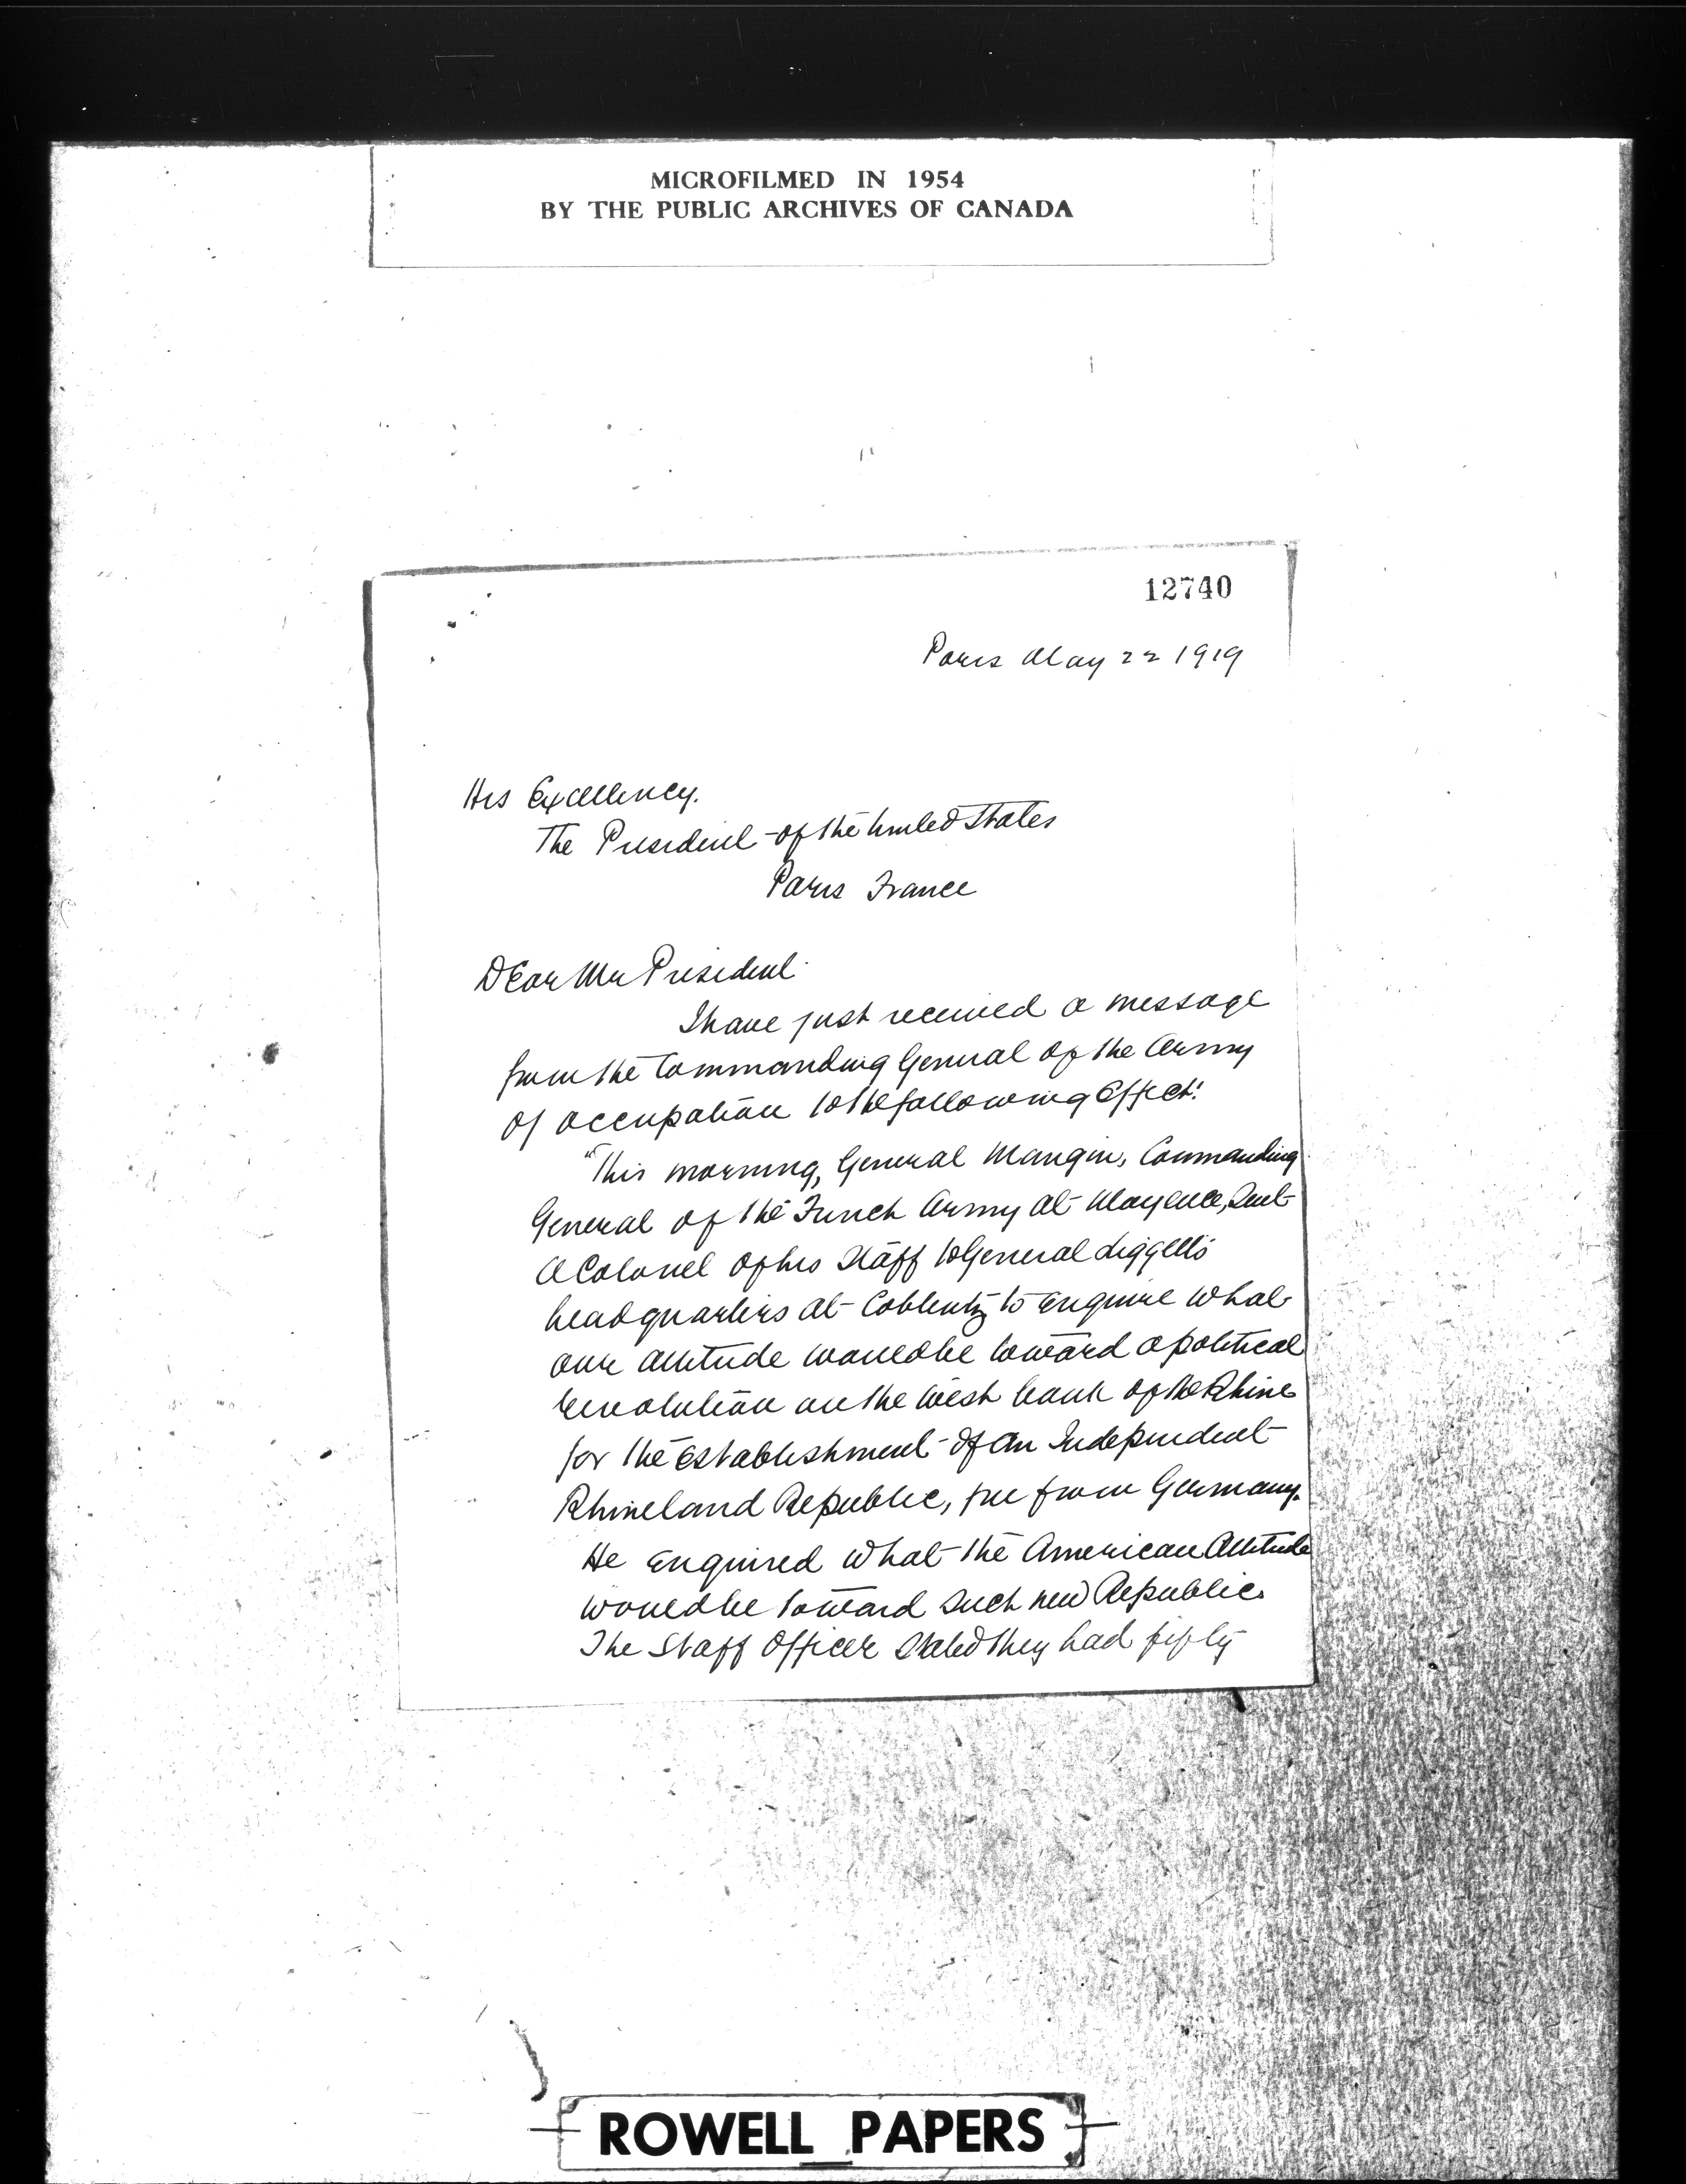 MICROFILMED IN 1954
BY THE PUBLIC ARCHIVES OF CANADA
12740
Paris May 22 1919
His Excellency.
The President of the United States
Paris France
Dear Mr President
I have just received a message
from the Commanding General of the Army
of occupation to the following effect:
"This morning, General Mangin, Commanding
General of the French Army at Mayence, Sent
a Colonel of his Staff to General Liggett's
headquarters at Coblentz to enquire what
our attitude would be toward a political
revolution on the west bank of the Rhine
for the establishment of an Independent
Rhineland Republic, free from Germany.
He enquired what the American Attitude
would be toward such new Republic.
The Staff Officer stated they had fifty
ROWELL PAPERS